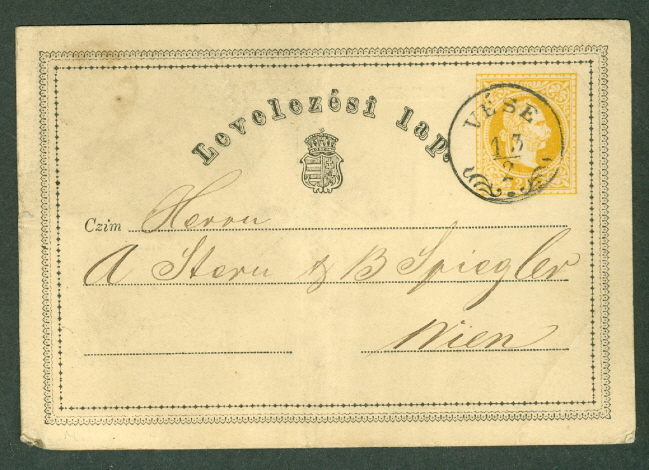 Levelezési lap.
VÉSE
13
Czim Herrn
A Stern & B Spiegler
Wien